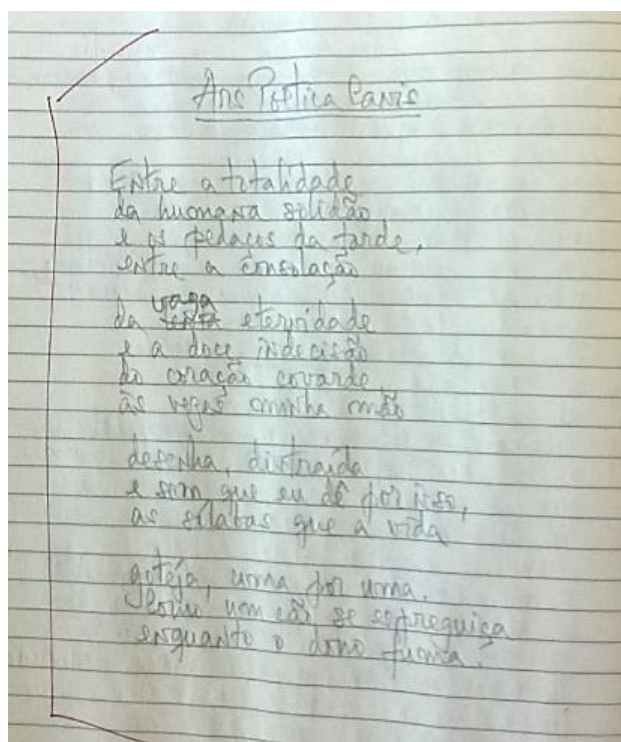 Ars Poetica Canis
Entre a totalidade
da humana solidão,
e os pedaços da tarde,
entre a consolação
da vaga eternidade
e a doce indecisão
do coração covarde,
às vezes minha mão
desenha, distraída
e sem que eu dê por isso,
as sílabas que a vida
goteja, uma por uma.
Como um cão se espreguiça
enquanto o dono fuma.